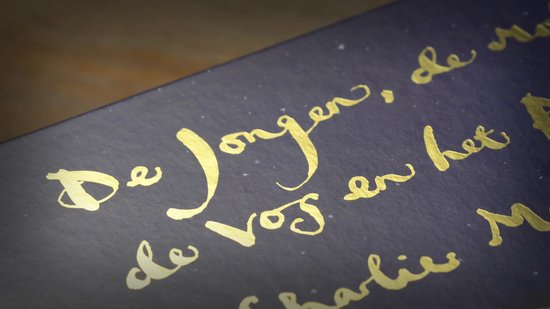 De Jongen, de
de vos en het
Charlie